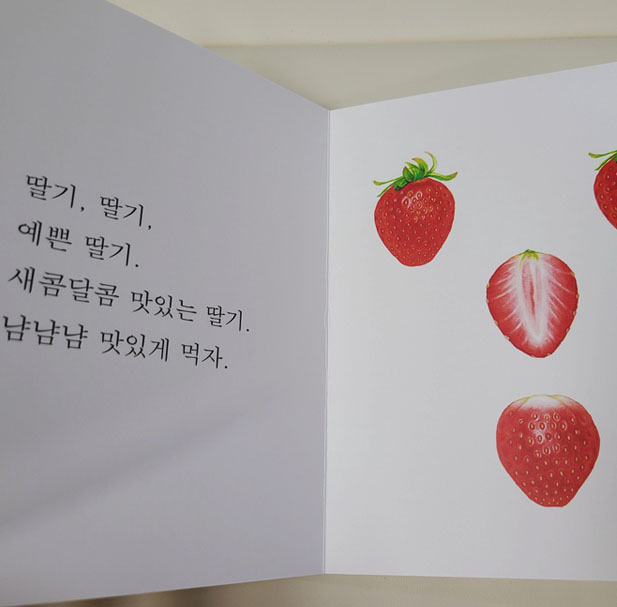 딸기, 딸기,
예쁜 딸기.
새콤달콤 맛있는 딸기.
냠냠냠 맛있게 먹자.